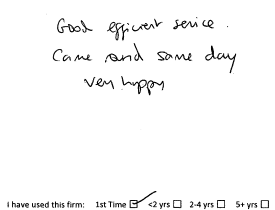 Good efficient service.
Came and same day
very happy
I have used this firm: 1st Time ☑ <2 yrs ☐ 2-4 yrs ☐ 5+ yrs ☐